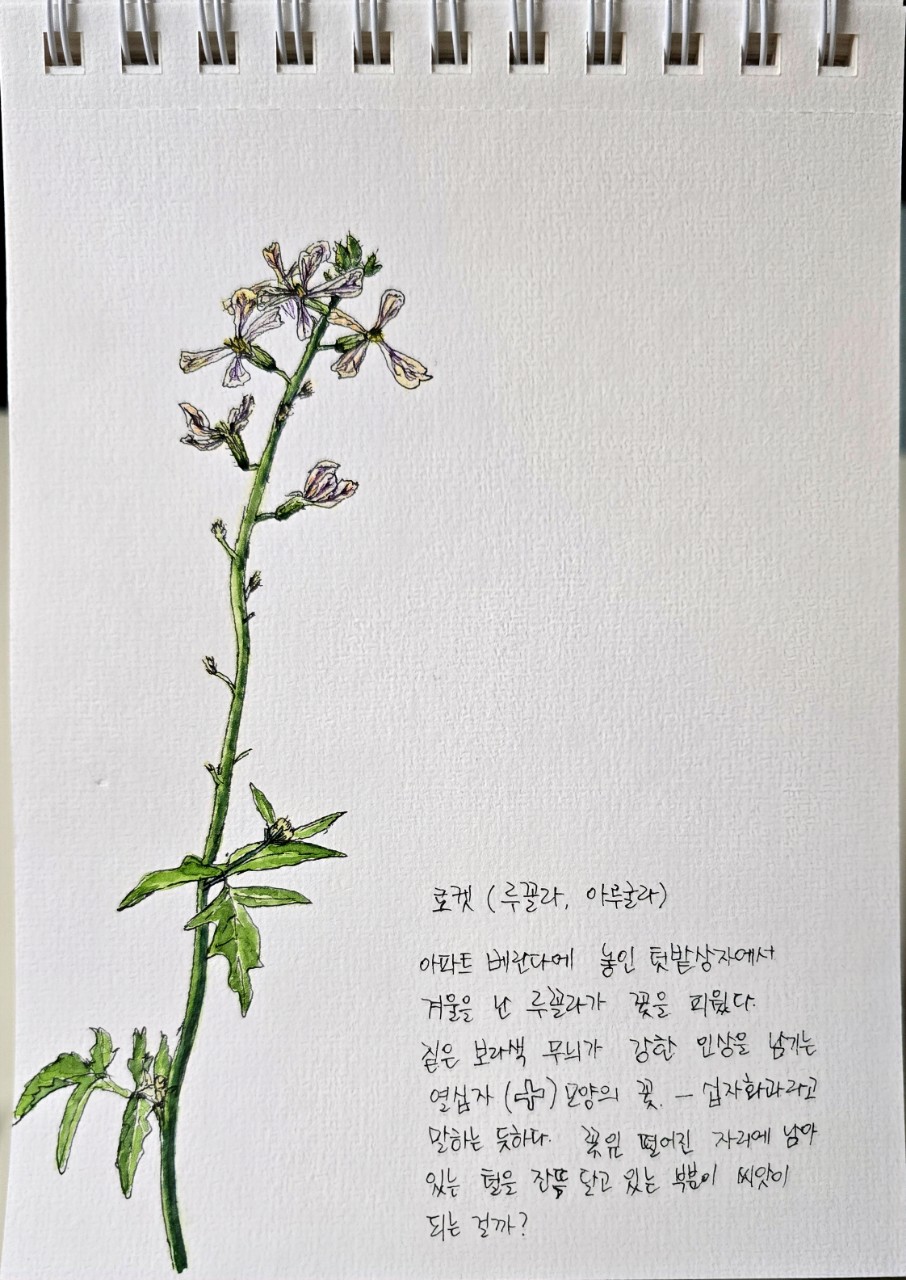 로켓 (루꼴라, 아루굴라)
아파트 베란다에 놓인 텃밭상자에서
겨울을 난 루꼴라가 꽃을 피웠다.
짙은 보라색 무늬가 강한 인상을 남기는
열십자 (十) 모양의 꽃. – 십자화과라고
말하는 듯하다. 꽃잎 떨어진 자리에 남아
있는 털을 잔뜩 달고 있는 부분이 씨앗이
되는 걸까?